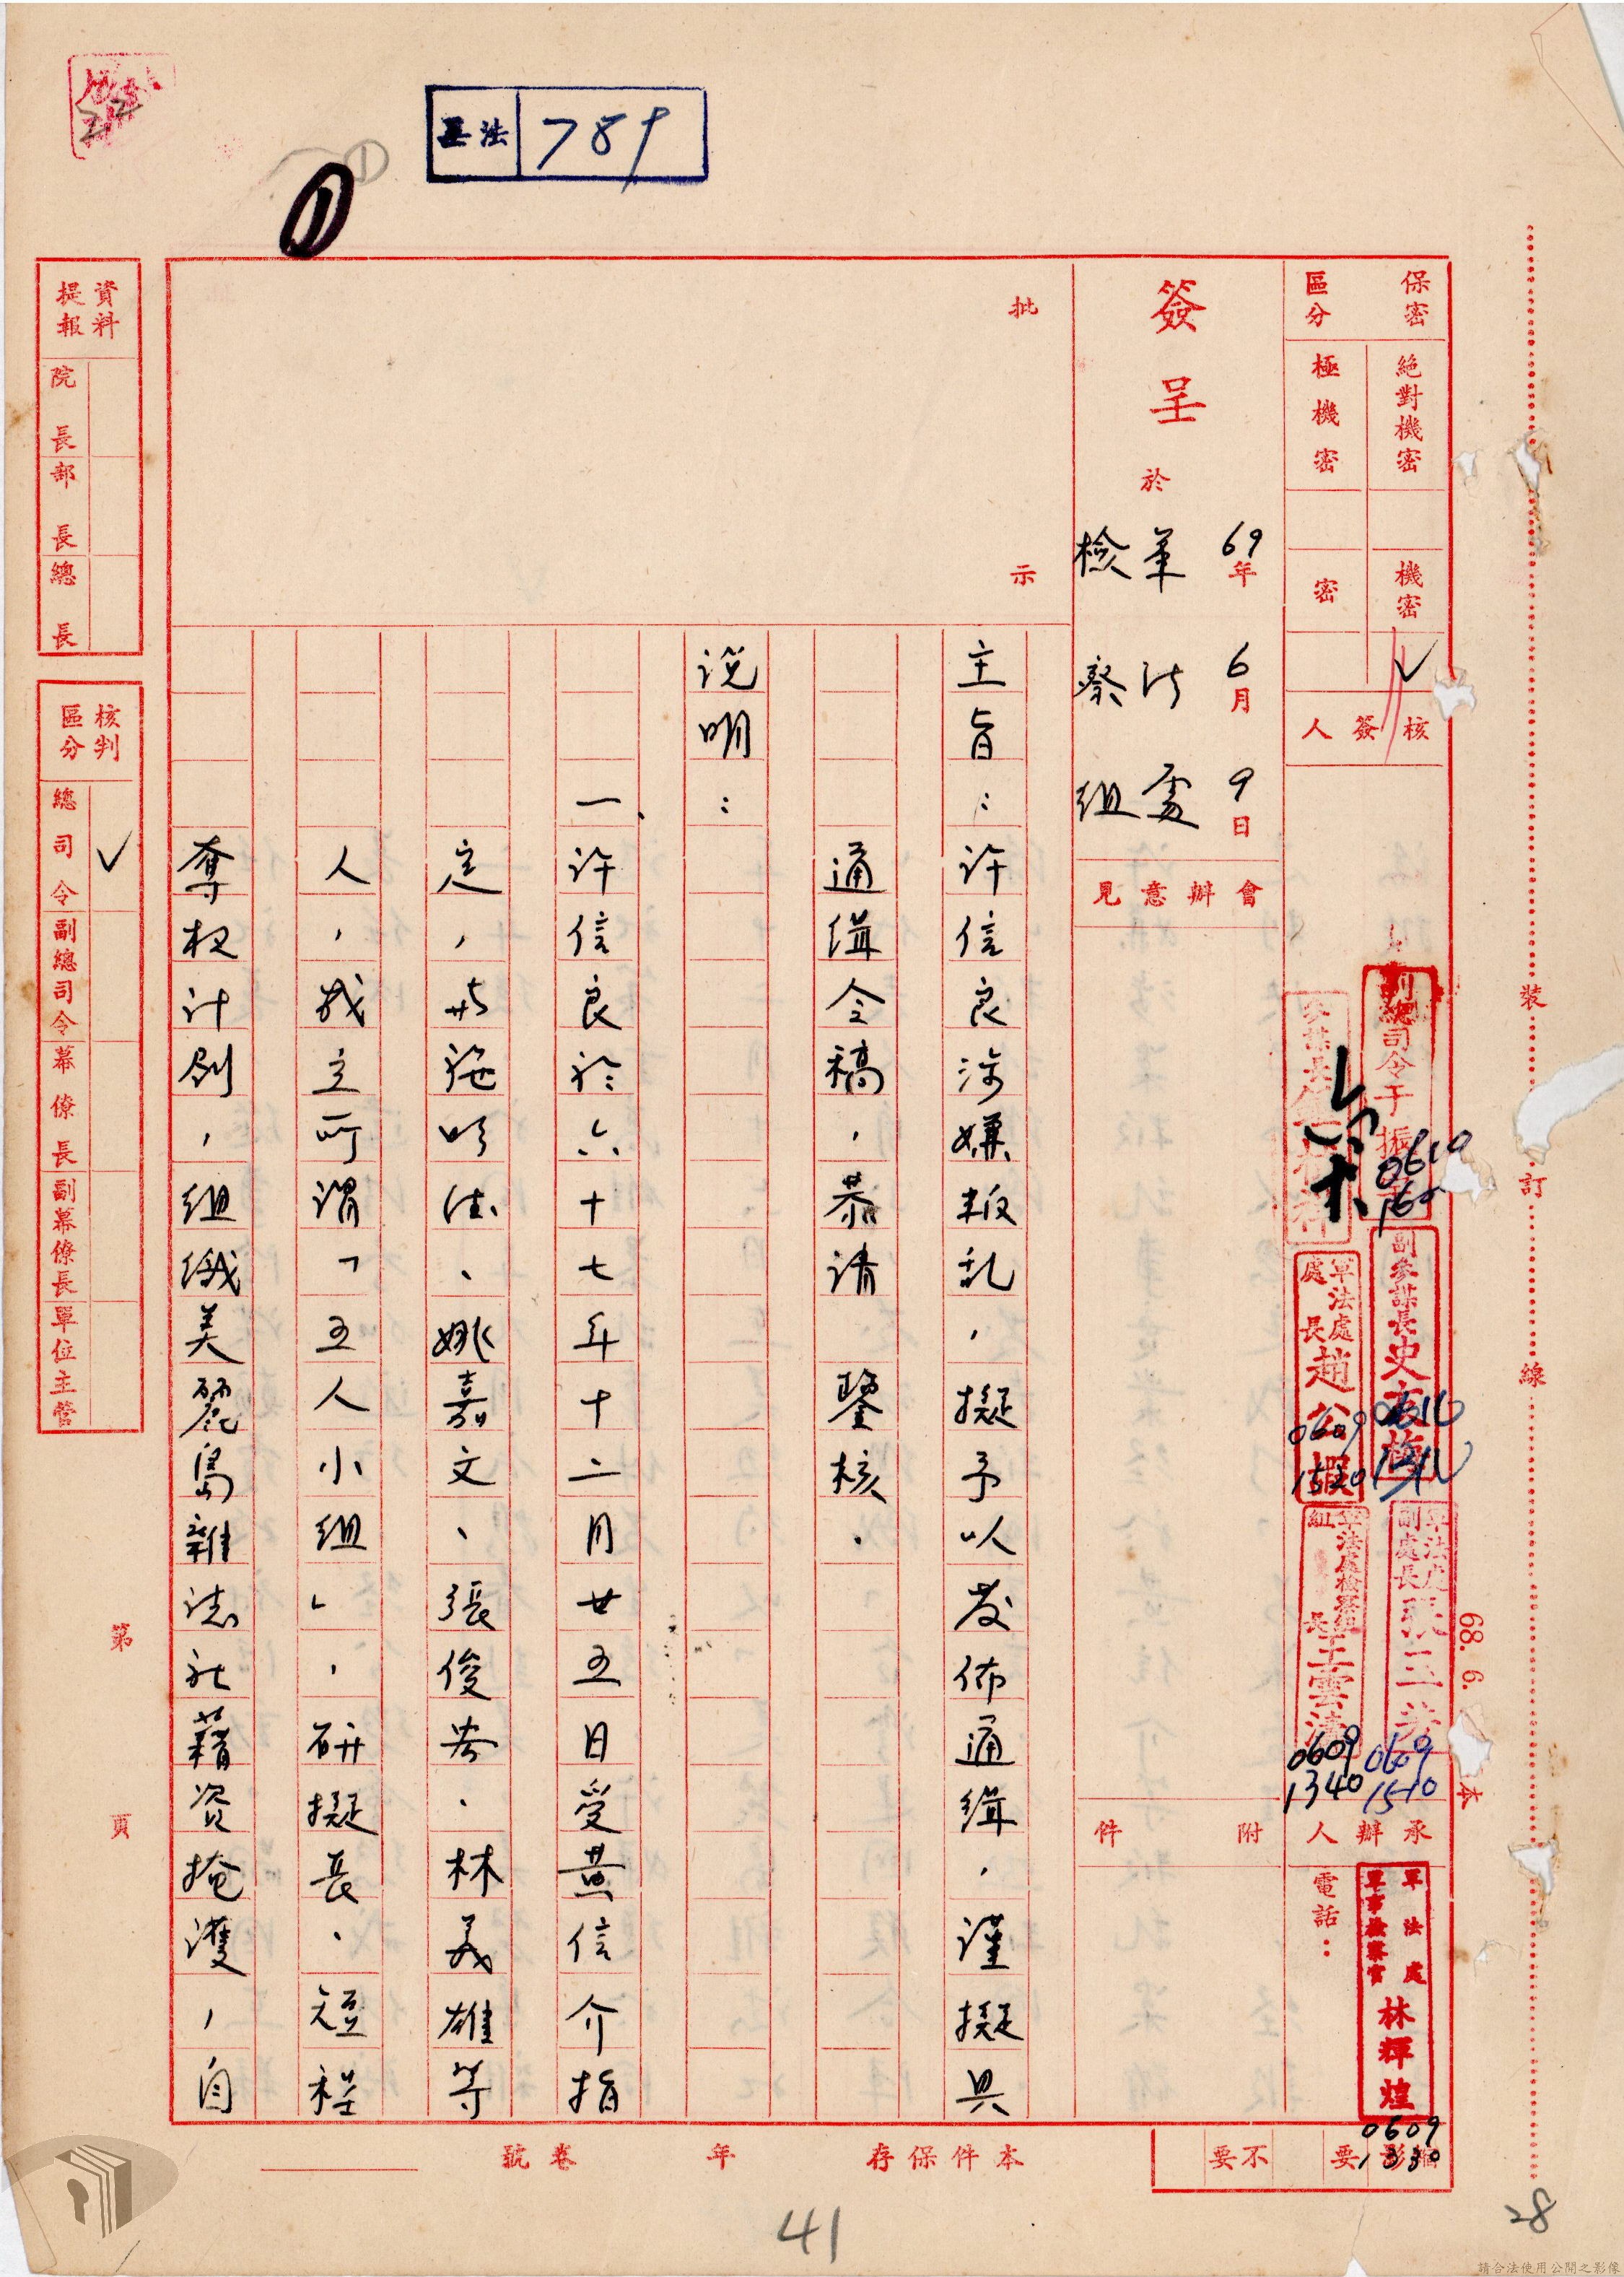 軍法 789
①
①
保密區分
絕對機密
極機密
機密 ✓
密
核簽人
副總司令于振
0610
參謀長
副參謀長史
0610
軍法處處長趙公嘏
0609
1520
軍法處副處長張
0609
1510
軍法處檢察組組長王雲濤
0609
1340
承辦人
軍法處軍事檢察官林輝煌
0609
1330
電話：
簽呈
於
69年6月9日
軍法處
檢察組
會辦意見
附件
批示
主旨：許信良涉嫌叛乱，擬予以发佈通緝，謹擬具
通缉令稿，恭請鑒核．
说明：
一、許信良於六十七年十二月廿五日受黃信介指
定，與施明德、姚嘉文、張俊宏、林義雄等
人，成立所謂「五人小組」，研擬長、短程
奪权计劃，組織美麗島雜誌社藉資掩護，自
資料提報
院長
部長
總長
核判區分
總司令 ✓
副總司令
幕僚長
副幕僚長
單位主管
第 頁
本件保存 年
卷號
縮影 要 不要
裝 訂 線
68. 6.
本
41
28
請合法使用公開之影像